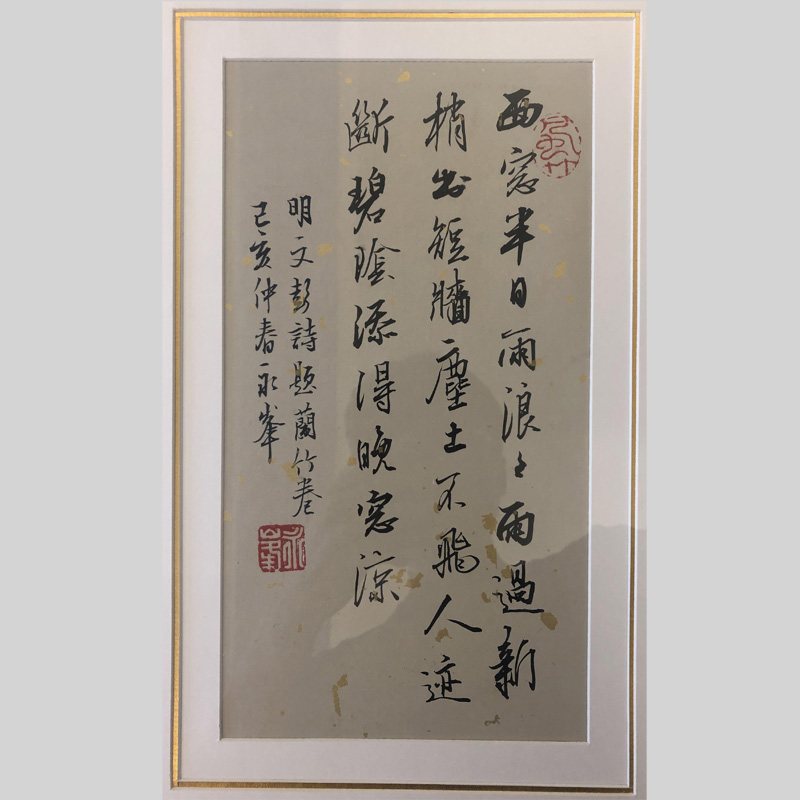 西窓半日雨浪〻雨過新
梢出短牆塵土不飛人迹
斷碧陰添得晚窓涼
明文彭詩題蘭竹卷
己亥仲春永峯
永峯